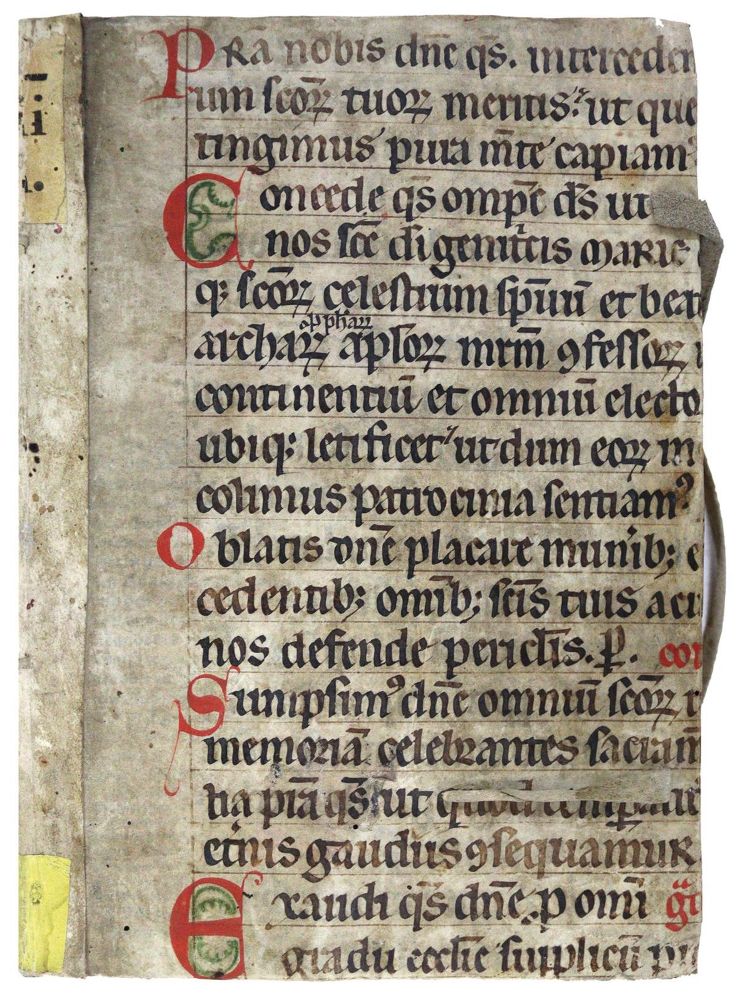 PRA nobis dnē qs. interceden
tium scōꝝ tuoꝝ meritis: ut que
tingimus pura mte capiam
Concede qs ompē ds ut
nos scē di genitcis marie
qꝫ scōꝝ celestium spūū et bea
archaꝝ ap̄loꝝ mrm̄ ꝯfessoꝝ
pphaꝝ
continentiū et omniū electo
ubiqꝫ letificet ut dum eoꝝ m
colimus patrocinia sentiamꝰ
Oblatis dnē placare munibꝫ
cedentibꝫ omībꝫ scīs tuis a cu
nos defende periclīs. P. con
Sumpsimꝰ dnē omniū scōꝝ
memoriā celebrantes sacram
tia piā qs ut quod tempali
etnis gaudiis ꝯsequamur
Exaudi qs dnē p omi g
gradu eccliē supplicū